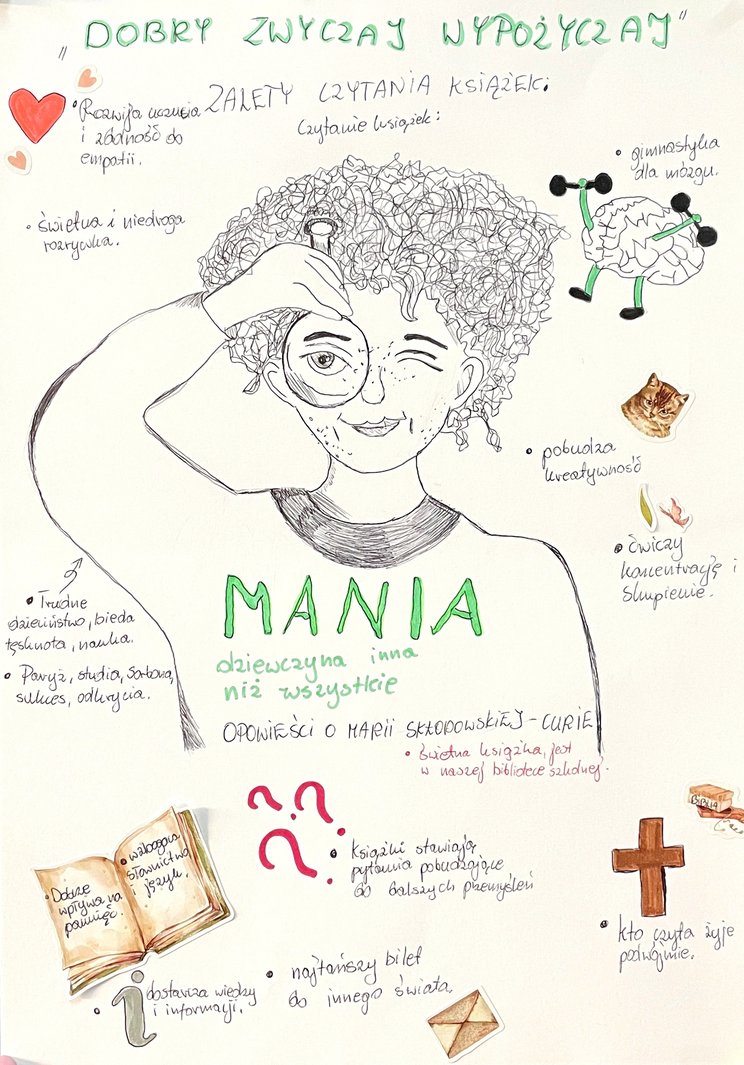 „DOBRY ZWYCZAJ WYPOŻYCZAJ"
ZALETY CZYTANIA KSIĄŻEK:
Czytanie książek:
• Rozwija uczucia
i zdolność do
empatii.
• świetna i niedroga
rozrywka.
• gimnastyka
dla mózgu.
• pobudza
kreatywność
• ćwiczy
koncentrację i
skupienie.
• Trudne
dzieciństwo, bieda
tęsknota, nauka.
• Paryż, studia, Sorbona,
sukces, odkrycia.
MANIA
dziewczyna inna
niż wszystkie
OPOWIEŚCI O MARII SKŁODOWSKIEJ-CURIE
• świetna książka, jest
w naszej bibliotece szkolnej.
???
• Książki stawiają
pytania pobudzające
do dalszych przemyśleń
• Dobrze
wpływa na
pamięć.
• wzbogaca
słownictwo
i język.
• i dostarcza wiedzy
i informacji.
• najtańszy bilet
do innego świata.
BIBLIA
• kto czyta żyje
podwójnie.